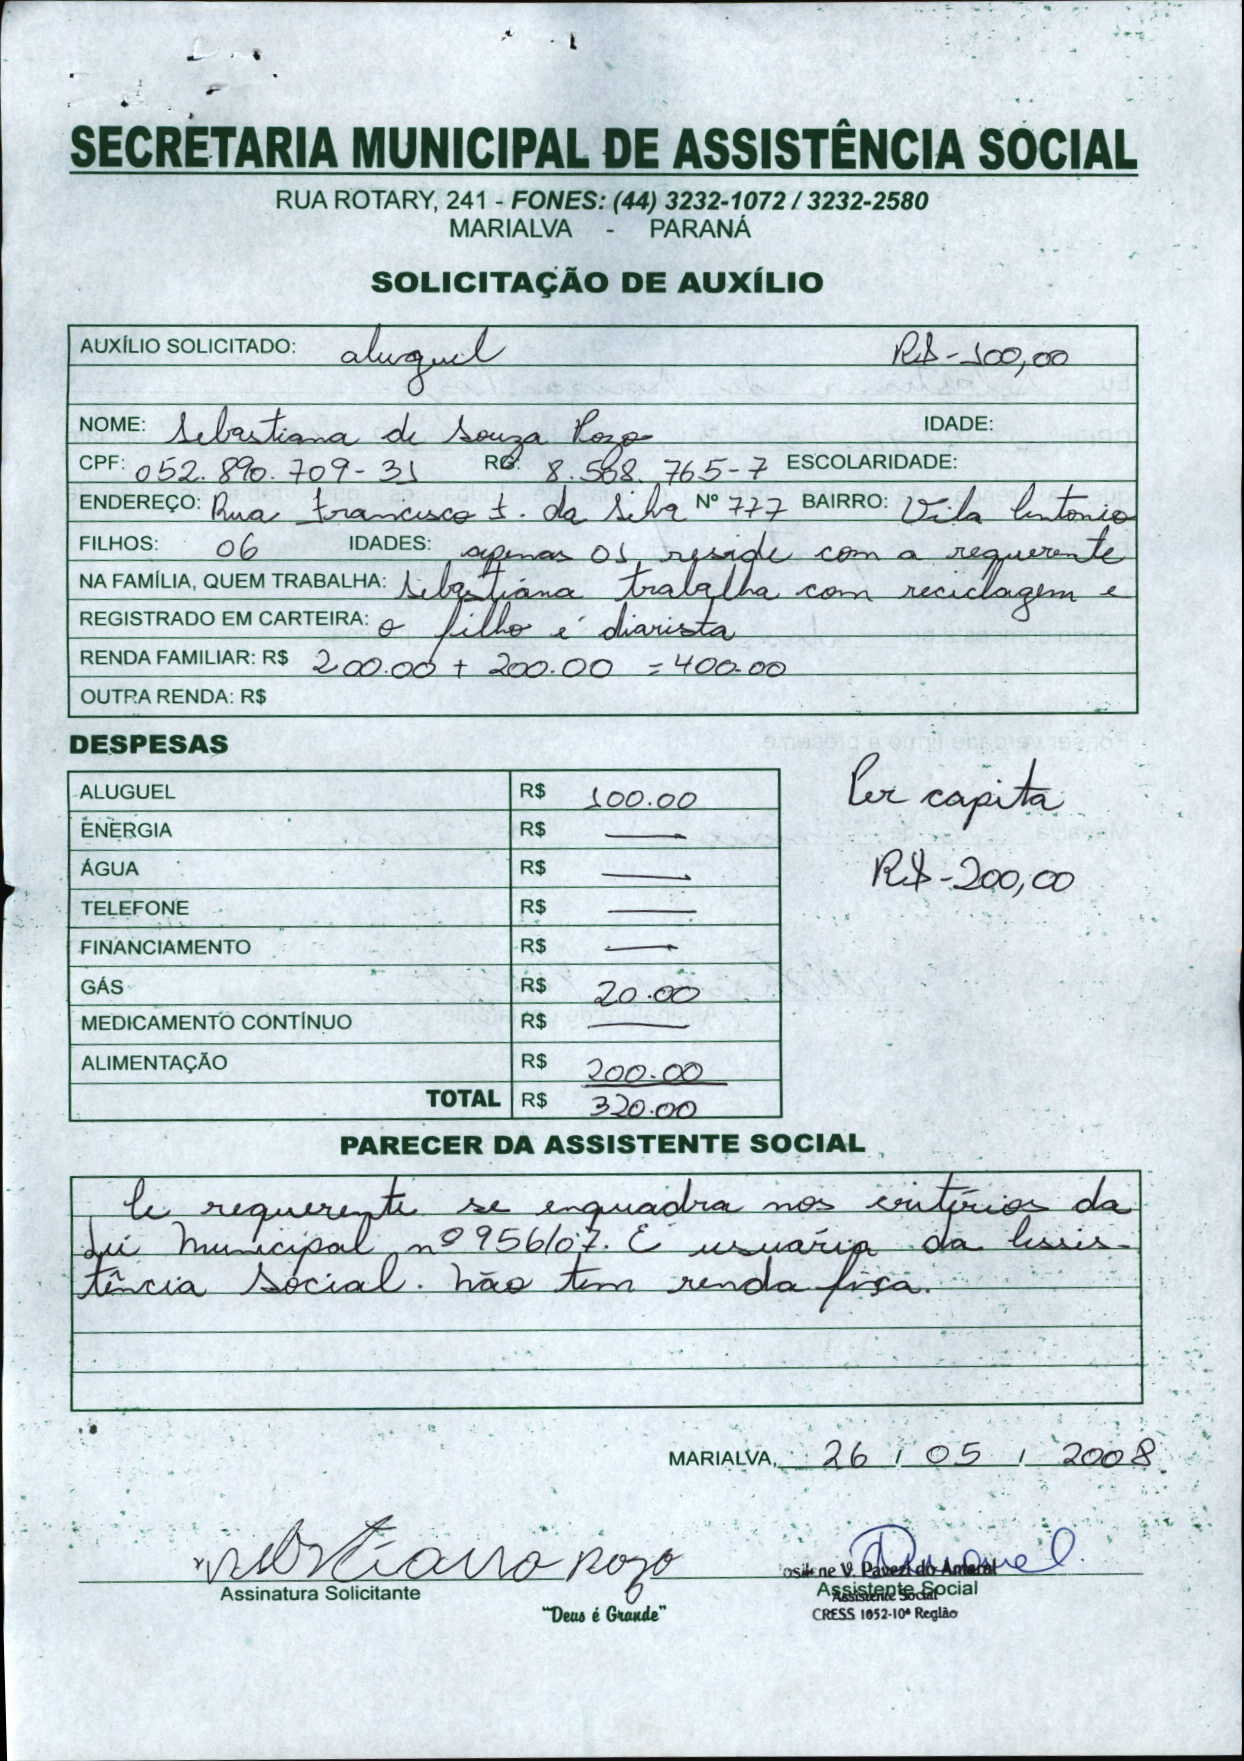 SECRETARIA MUNICIPAL DE ASSISTÊNCIA SOCIAL
RUA ROTARY, 241 - FONES: (44) 3232-1072 / 3232-2580
MARIALVA - PARANÁ
SOLICITAÇÃO DE AUXÍLIO
AUXÍLIO SOLICITADO: aluguel R$-100,00
NOME: Sebastiana de Souza Pozo IDADE:
CPF: 052.890.709-31 RG: 8.568.765-7 ESCOLARIDADE:
ENDEREÇO: Rua Francisco J. da Silva Nº 777 BAIRRO: Vila Antonio
FILHOS: 06 IDADES: apenas 01 reside com a requerente
NA FAMÍLIA, QUEM TRABALHA: Sebastiana trabalha com reciclagem e
REGISTRADO EM CARTEIRA: o filho é diarista
RENDA FAMILIAR: R$ 200.00 + 200.00 = 400.00
OUTRA RENDA: R$
DESPESAS
ALUGUEL R$ 100.00
Per capita
ENERGIA R$ —
ÁGUA R$ —
R$-200,00
TELEFONE R$ —
FINANCIAMENTO R$ —
GÁS R$ 20.00
MEDICAMENTO CONTÍNUO R$ —
ALIMENTAÇÃO R$ 200.00
TOTAL R$ 320.00
PARECER DA ASSISTENTE SOCIAL
A requerente se enquadra nos critérios da
Lei Municipal nº 956/07. É usuária da Assis-
tência Social. Não tem renda fixa.
MARIALVA, 26 / 05 / 2008
Sebastiana Pozo
Assinatura Solicitante
osilene V. Pavezi do Amaral
Assistente Social
Assistente Social
CRESS 1052-10ª Região
"Deus é Grande"